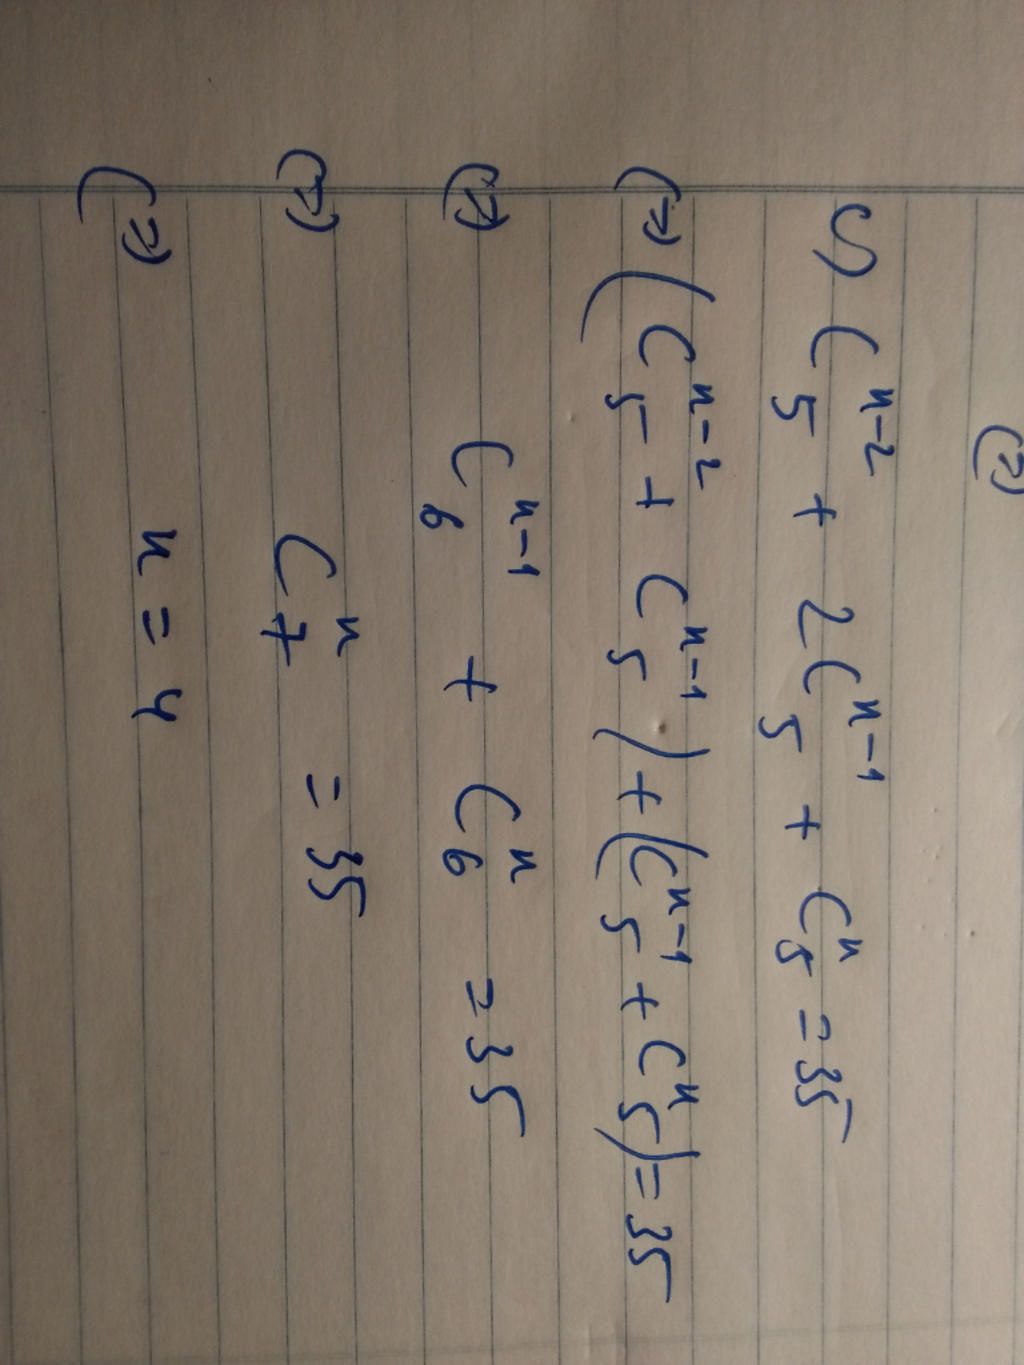 (⇒)
c) C_5^{n-2} + 2C_5^{n-1} + C_5^n = 35
(⇒) (C_5^{n-2} + C_5^{n-1}) + (C_5^{n-1} + C_5^n) = 35
(⇒) C_6^{n-1} + C_6^n = 35
(⇒) C_7^n = 35
(⇒) n = 4